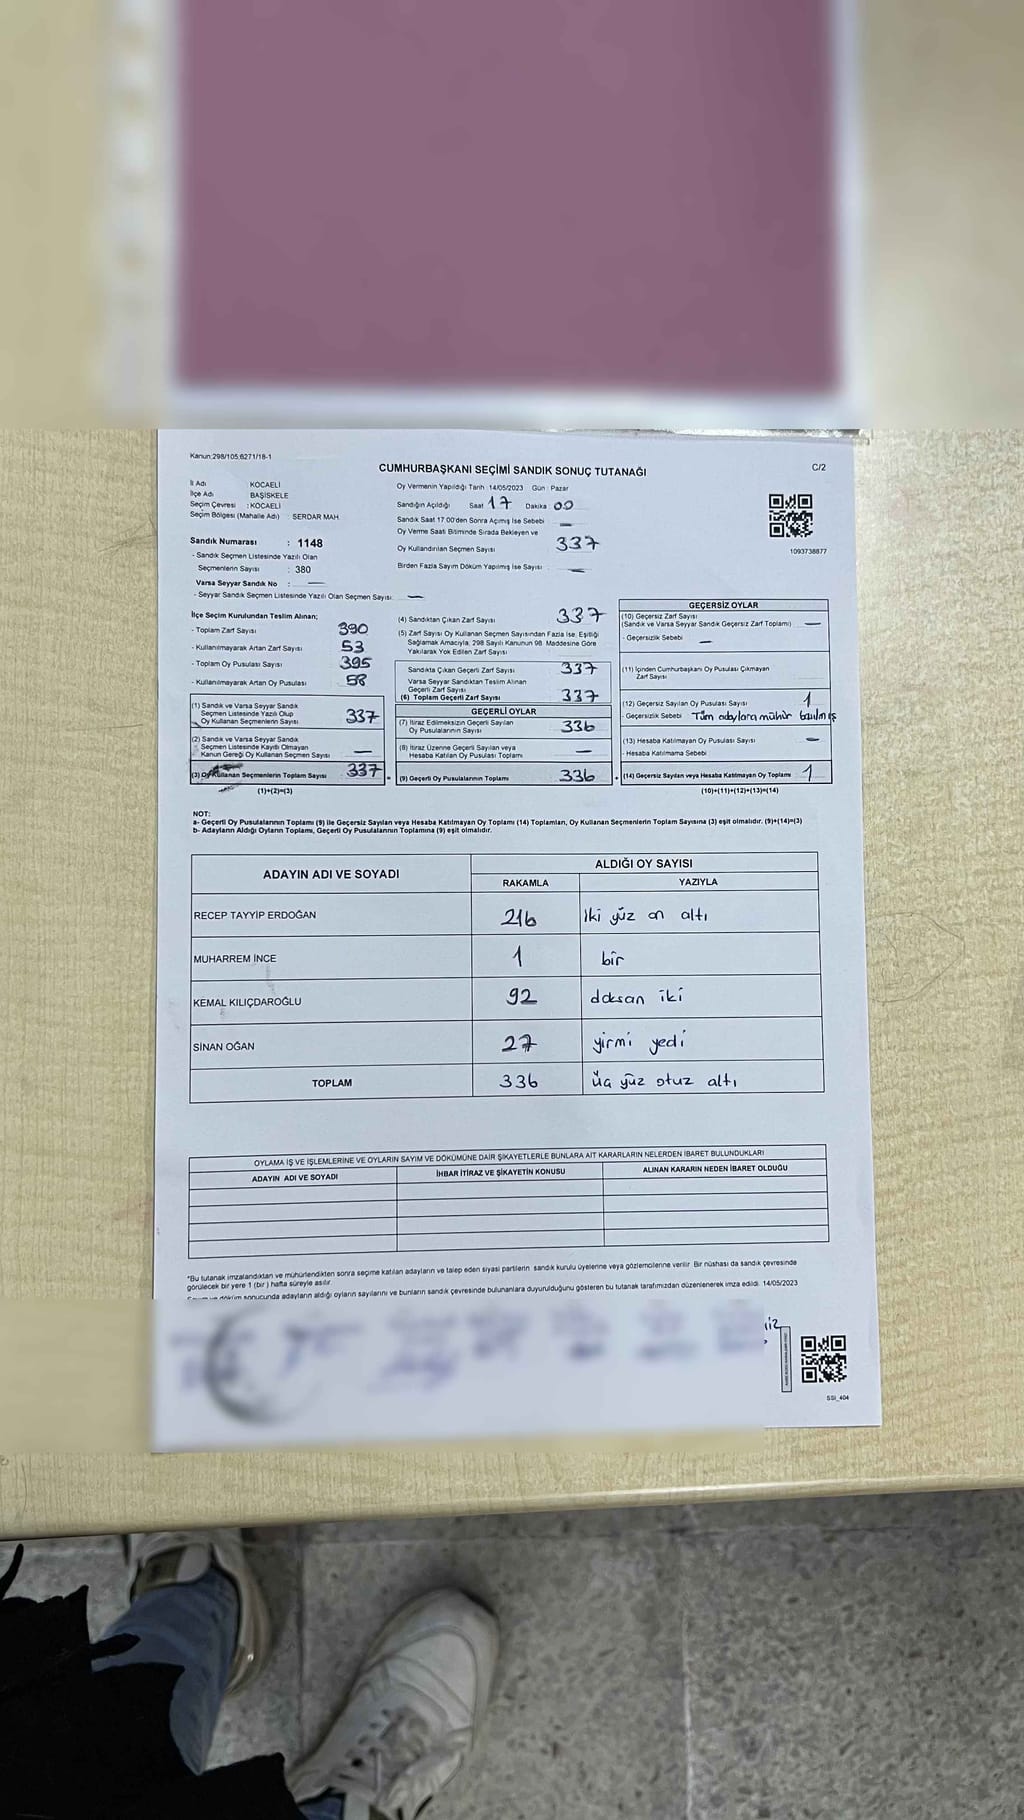 Kanun;298/105;6271/18-1
C/2
CUMHURBAŞKANI SEÇİMİ SANDIK SONUÇ TUTANAĞI
İl Adı : KOCAELİ
İlçe Adı : BAŞİSKELE
Seçim Çevresi : KOCAELİ
Seçim Bölgesi (Mahalle Adı) : SERDAR MAH.
Sandık Numarası : 1148
- Sandık Seçmen Listesinde Yazılı Olan
Seçmenlerin Sayısı : 380
Varsa Seyyar Sandık No : —
- Seyyar Sandık Seçmen Listesinde Yazılı Olan Seçmen Sayısı: —
Oy Vermenin Yapıldığı Tarih : 14/05/2023 Gün : Pazar
Sandığın Açıldığı Saat 17 Dakika 00
Sandık Saat 17:00'den Sonra Açılmış İse Sebebi —
Oy Verme Saati Bitiminde Sırada Bekleyen ve
Oy Kullandırılan Seçmen Sayısı 337
Birden Fazla Sayım Döküm Yapılmış İse Sayısı —
1093738877
İlçe Seçim Kurulundan Teslim Alınan;
- Toplam Zarf Sayısı 390
- Kullanılmayarak Artan Zarf Sayısı 53
- Toplam Oy Pusulası Sayısı 395
- Kullanılmayarak Artan Oy Pusulası 58
(1) Sandık ve Varsa Seyyar Sandık
Seçmen Listesinde Yazılı Olup
Oy Kullanan Seçmenlerin Sayısı 337
(2) Sandık ve Varsa Seyyar Sandık
Seçmen Listesinde Kayıtlı Olmayan
Kanun Gereği Oy Kullanan Seçmen Sayısı —
(3) Oy Kullanan Seçmenlerin Toplam Sayısı 337
(1)+(2)=(3)
(4) Sandıktan Çıkan Zarf Sayısı 337
(5) Zarf Sayısı Oy Kullanan Seçmen Sayısından Fazla İse, Eşitliği
Sağlamak Amacıyla, 298 Sayılı Kanunun 98. Maddesine Göre
Yakılarak Yok Edilen Zarf Sayısı
Sandıkta Çıkan Geçerli Zarf Sayısı 337
Varsa Seyyar Sandıktan Teslim Alınan
Geçerli Zarf Sayısı
(6) Toplam Geçerli Zarf Sayısı 337
GEÇERLİ OYLAR
(7) İtiraz Edilmeksizin Geçerli Sayılan
Oy Pusulalarının Sayısı 336
(8) İtiraz Üzerine Geçerli Sayılan veya
Hesaba Katılan Oy Pusulası Toplamı —
= (9) Geçerli Oy Pusulalarının Toplamı 336
GEÇERSİZ OYLAR
(10) Geçersiz Zarf Sayısı
(Sandık ve Varsa Seyyar Sandık Geçersiz Zarf Toplamı) —
- Geçersizlik Sebebi —
(11) İçinden Cumhurbaşkanı Oy Pusulası Çıkmayan
Zarf Sayısı
(12) Geçersiz Sayılan Oy Pusulası Sayısı 1
- Geçersizlik Sebebi Tüm adaylara mühür basılmış
(13) Hesaba Katılmayan Oy Pusulası Sayısı —
- Hesaba Katılmama Sebebi
+ (14) Geçersiz Sayılan veya Hesaba Katılmayan Oy Toplamı 1
(10)+(11)+(12)+(13)=(14)
NOT:
a- Geçerli Oy Pusulalarının Toplamı (9) ile Geçersiz Sayılan veya Hesaba Katılmayan Oy Toplamı (14) Toplamları, Oy Kullanan Seçmenlerin Toplam Sayısına (3) eşit olmalıdır. (9)+(14)=(3)
b- Adayların Aldığı Oyların Toplamı, Geçerli Oy Pusulalarının Toplamına (9) eşit olmalıdır.
ADAYIN ADI VE SOYADI
ALDIĞI OY SAYISI
RAKAMLA YAZIYLA
RECEP TAYYİP ERDOĞAN 216 iki yüz on altı
MUHARREM İNCE 1 bir
KEMAL KILIÇDAROĞLU 92 doksan iki
SİNAN OĞAN 27 yirmi yedi
TOPLAM 336 üç yüz otuz altı
OYLAMA İŞ VE İŞLEMLERİNE VE OYLARIN SAYIM VE DÖKÜMÜNE DAİR ŞİKAYETLERLE BUNLARA AİT KARARLARIN NELERDEN İBARET BULUNDUKLARI
ADAYIN ADI VE SOYADI İHBAR İTİRAZ VE ŞİKAYETİN KONUSU ALINAN KARARIN NEDEN İBARET OLDUĞU
*Bu tutanak imzalandıktan ve mühürlendikten sonra seçime katılan adayların ve talep eden siyasi partilerin sandık kurulu üyelerine veya gözlemcilerine verilir. Bir nüshası da sandık çevresinde
görülecek bir yere 1 (bir) hafta süreyle asılır.
döküm sonucunda adayların aldığı oyların sayılarını ve bunların sandık çevresinde bulunanlara duyurulduğunu gösteren bu tutanak tarafımızdan düzenlenerek imza edildi. 14/05/2023
SSI_404